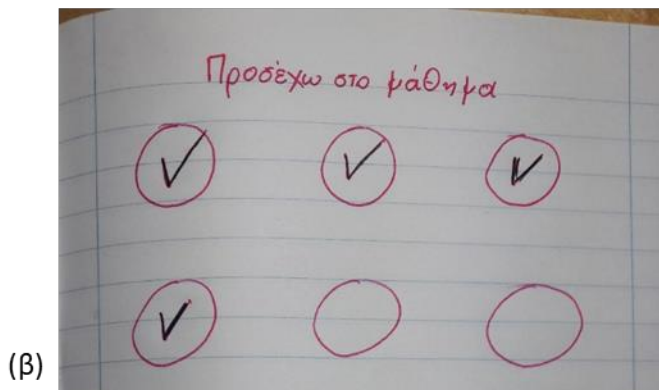 Προσέχω στο μάθημα
(β)